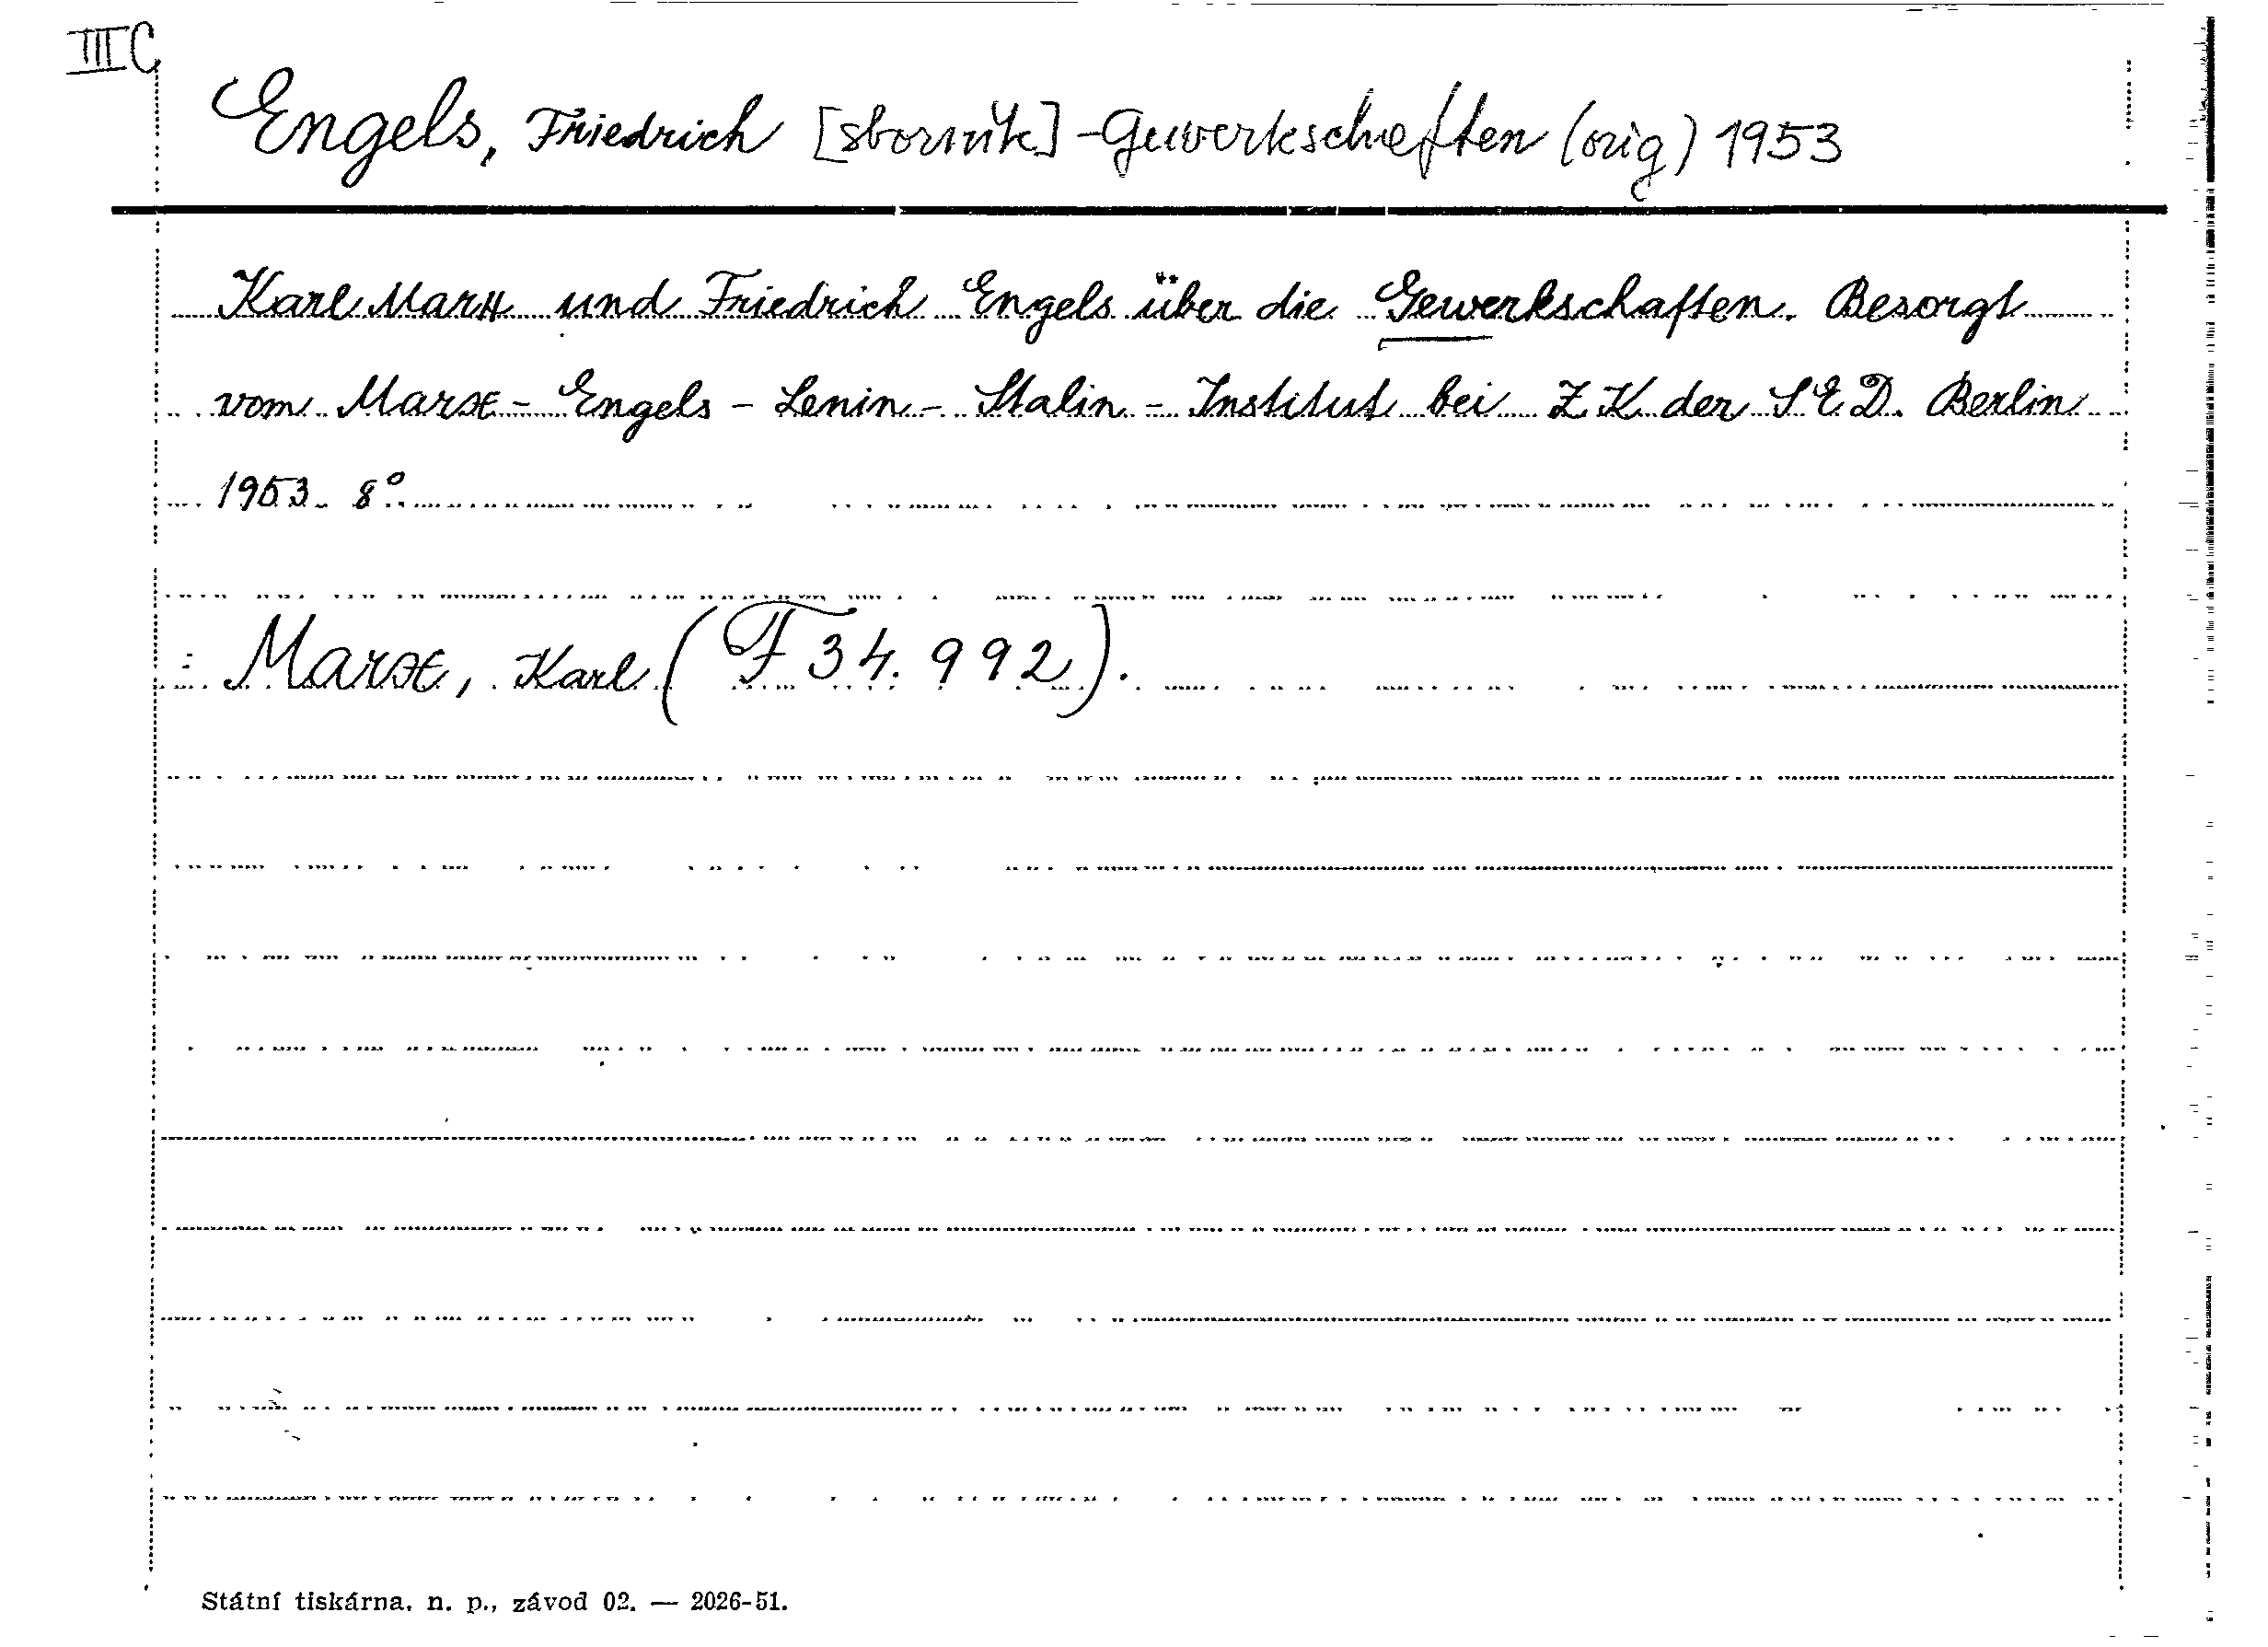 III C
Engels, Friedrich [sborník] - Gewerkschaften (orig) 1953
Karl Marx und Friedrich Engels über die Gewerkschaften. Besorgt
vom Marx - Engels - Lenin - Stalin - Institut bei ZK der SED. Berlin
1953. 8°.
= Marx, Karl (F 34.992).
Státní tiskárna, n. p., závod 02. — 2026-51.